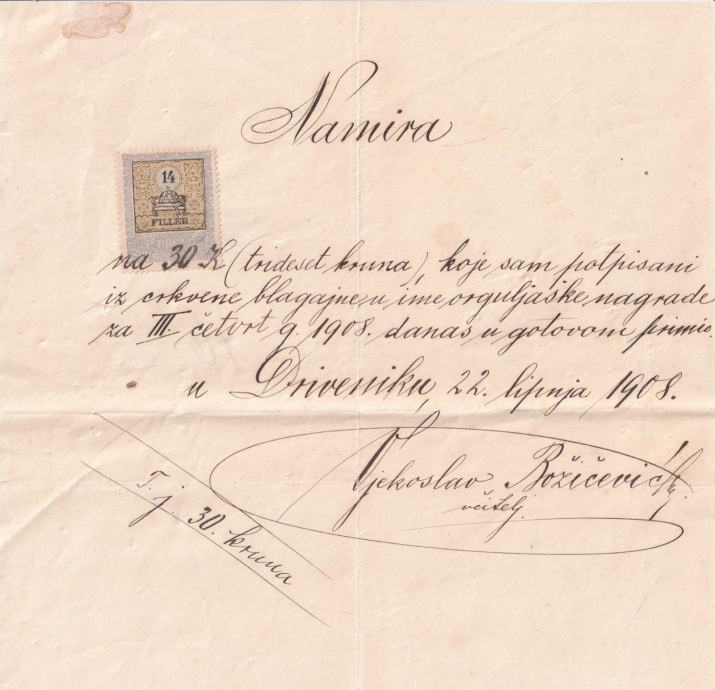 Namira
14
FILLÉR
na 30 K (trideset kruna), koje sam potpisani
iz crkvene blagajne u ime orguljaške nagrade
za III. četvrt g. 1908. danas u gotovom primio.
u Driveniku, 22. lipnja 1908.
Vjekoslav Božičević
učitelj
T. j. 30. kruna